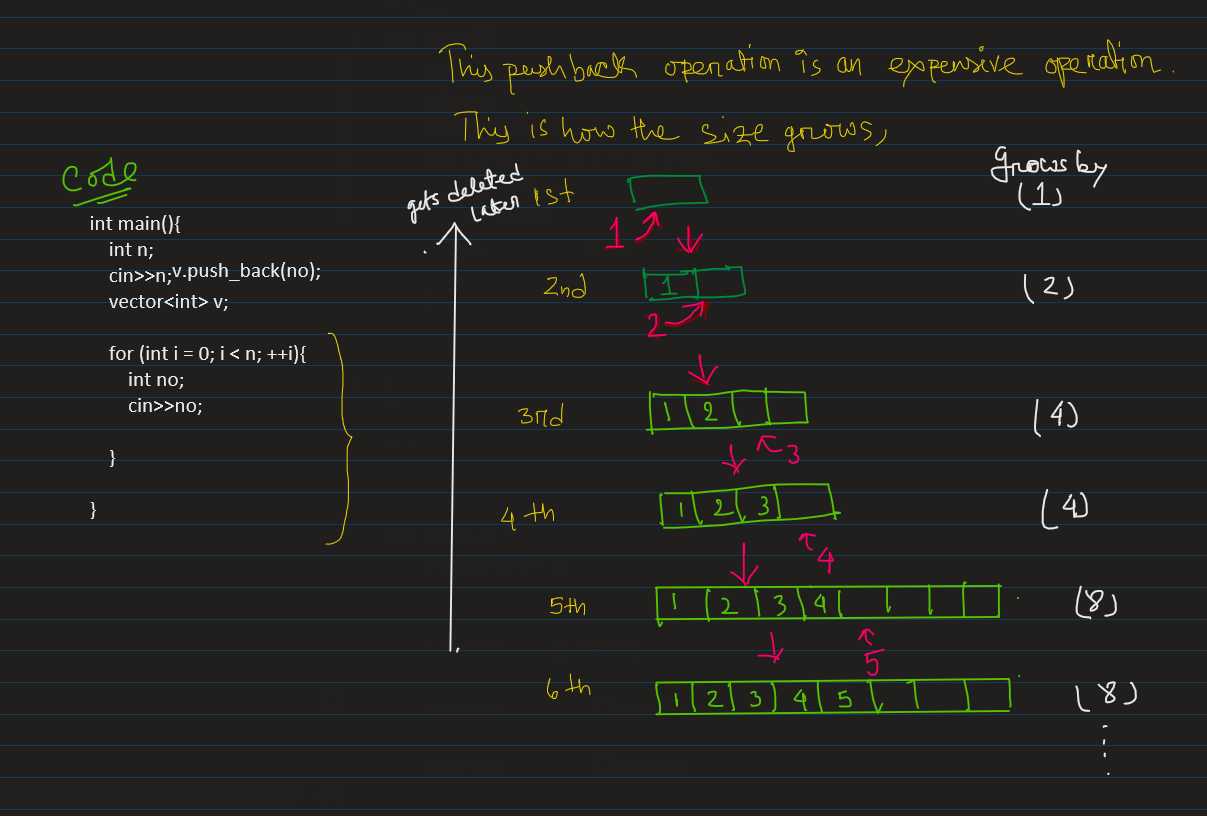 This pushback operation is an expensive operation.
This is how the size grows,
Code
int main(){
int n;
cin>>n;v.push_back(no);
vector<int> v;
for (int i = 0; i < n; ++i){
int no;
cin>>no;
}
}
gets deleted
later
Grows by
1st
(1)
1
2nd
1
(2)
2
3rd
1 2
(4)
3
4th
1 2 3
(4)
4
5th
1 2 3 4
(8)
5
6th
1 2 3 4 5
(8)